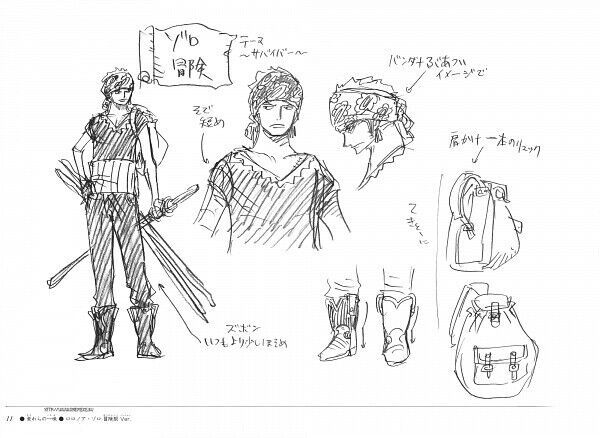 ゾロ
冒険
テーマ
〜サバイバー〜
バンダナ
イメージで
そで
短め
肩かけ一本のリュック
てきとーに
ズボン
いつもより少しほそめ
11 ●麦わらの一味●ロロノア・ゾロ 冒険服 Ver.